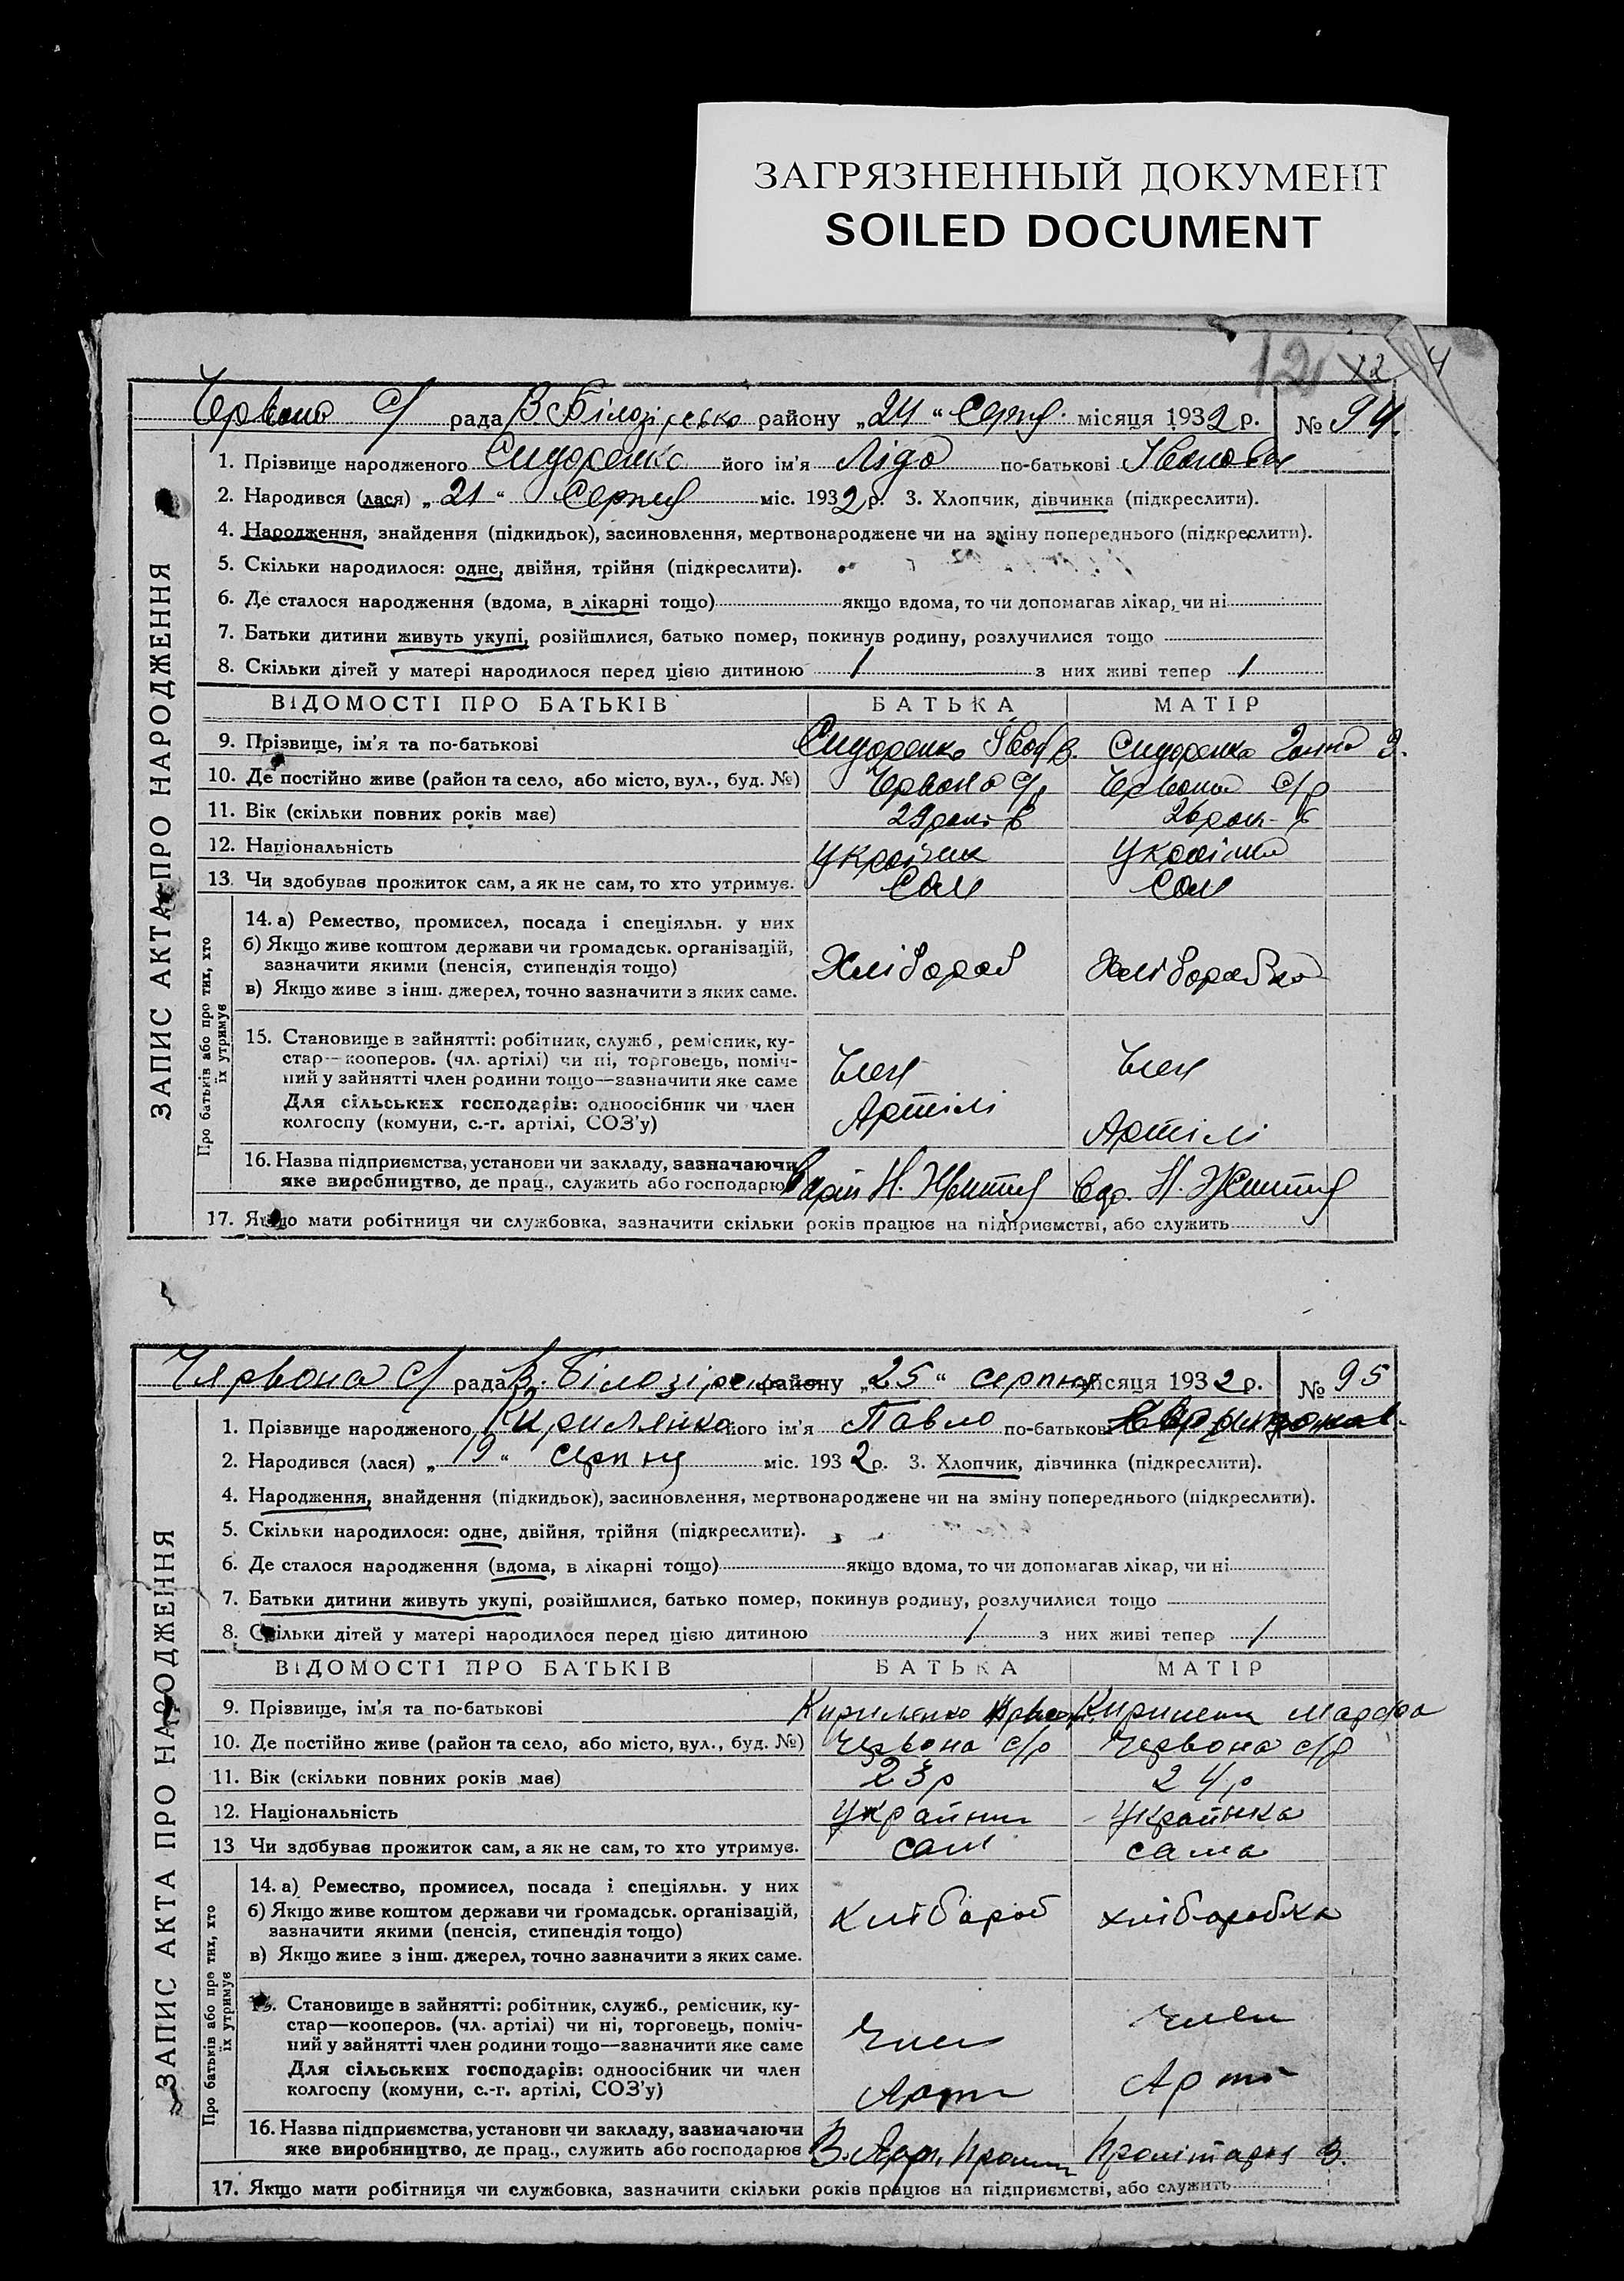 ЗАГРЯЗНЕННЫЙ ДОКУМЕНТ
SOILED DOCUMENT
12 12 4
Червона С/ рада В. Білозірсько району „24“ Серпня місяця 1932 р. № 94.
1. Прізвище народженого Сидоренко його ім'я Ліда по-батькові Іванова
2. Народився (лася) „21“ Серпня міс. 1932 р. 3. Хлопчик, дівчинка (підкреслити).
4. Народження, знайдення (підкидьок), засиновлення, мертвонароджене чи на зміну попереднього (підкреслити).
5. Скільки народилося: одне, двійня, трійня (підкреслити).
6. Де сталося народження (вдома, в лікарні тощо) якщо вдома, то чи допомагав лікар, чи ні
7. Батьки дитини живуть укупі, розійшлися, батько помер, покинув родину, розлучилися тощо
8. Скільки дітей у матері народилося перед цією дитиною 1 з них живі тепер 1
ЗАПИС АКТА ПРО НАРОДЖЕННЯ
ВІДОМОСТІ ПРО БАТЬКІВ БАТЬКА МАТІР
9. Прізвище, ім'я та по-батькові Сидоренко Іван В. Сидоренко Ганна З.
10. Де постійно живе (район та село, або місто, вул., буд. №) Червона С/ Червона С/р
11. Вік (скільки повних років має) 29 років 26 рок
12. Національність Україник Українка
13. Чи здобував прожиток сам, а як не сам, то хто утримує. Сам Сам
Про батьків або про тих, хто
їх утримує
14. а) Ремество, промисел, посада і спеціяльн. у них
б) Якщо живе коштом держави чи громадськ. організацій,
зазначити якими (пенсія, стипендія тощо) Хлібороб Хліборобка
в) Якщо живе з інш. джерел, точно зазначити з яких саме.
15. Становище в зайнятті: робітник, служб., ремісник, ку-
стар—кооперов. (чл. артілі) чи ні, торговець, поміч-
ний у зайнятті член родини тощо—зазначити яке саме Член Член
Для сільських господарів: одноосібник чи член
колгоспу (комуни, с.-г. артілі, СОЗ'у) Артілі Артілі
16. Назва підприємства, установи чи закладу, зазначаючи
яке виробництво, де прац., служить або господарює Н. Життя Н. Життя
17. Якщо мати робітниця чи службовка, зазначити скільки років працює на підприємстві, або служить
Червона С/ рада В. Білозірсько району „25“ серпня місяця 1932 р. № 95
1. Прізвище народженого Кириленко його ім'я Павло по-батькові
2. Народився (лася) „19“ серпня міс. 1932 р. 3. Хлопчик, дівчинка (підкреслити).
4. Народження, знайдення (підкидьок), засиновлення, мертвонароджене чи на зміну попереднього (підкреслити).
5. Скільки народилося: одне, двійня, трійня (підкреслити).
6. Де сталося народження (вдома, в лікарні тощо) якщо вдома, то чи допомагав лікар, чи ні
7. Батьки дитини живуть укупі, розійшлися, батько помер, покинув родину, розлучилися тощо
8. Скільки дітей у матері народилося перед цією дитиною 1 з них живі тепер 1
ЗАПИС АКТА ПРО НАРОДЖЕННЯ
ВІДОМОСТІ ПРО БАТЬКІВ БАТЬКА МАТІР
9. Прізвище, ім'я та по-батькові Кириленко Марфа
10. Де постійно живе (район та село, або місто, вул., буд. №) Червона с/р Червона с/р
11. Вік (скільки повних років має) 23 р 24 р
12. Національність Украйин Украйнка
13 Чи здобував прожиток сам, а як не сам, то хто утримує. сам сама
Про батьків або про тих, хто
їх утримує
14. а) Ремество, промисел, посада і спеціяльн. у них
б) Якщо живе коштом держави чи громадськ. організацій,
зазначити якими (пенсія, стипендія тощо) хлібороб хліборобка
в) Якщо живе з інш. джерел, точно зазначити з яких саме.
15. Становище в зайнятті: робітник, служб., ремісник, ку-
стар—кооперов. (чл. артілі) чи ні, торговець, поміч-
ний у зайнятті член родини тощо—зазначити яке саме Член Член
Для сільських господарів: одноосібник чи член
колгоспу (комуни, с.-г. артілі, СОЗ'у) Арті Арті
16. Назва підприємства, установи чи закладу, зазначаючи
яке виробництво, де прац., служить або господарює
17. Якщо мати робітниця чи службовка, зазначити скільки років працює на підприємстві, або служить